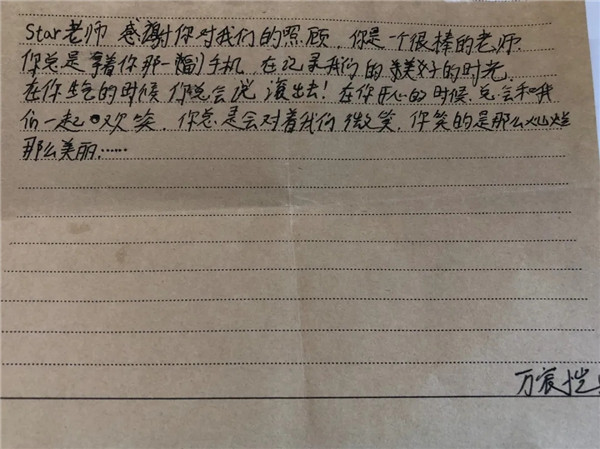 Star老师 感谢你对我们的照顾，你是一个很棒的老师.
你总是拿着你那一副手机，在记录我们的美好的时光.
在你生气的时候 你总会说 滚出去！在你开心的时候，总会和我
们一起欢笑，你总是会对着我们微笑，你笑的是那么灿烂
那么美丽……
万宸恺